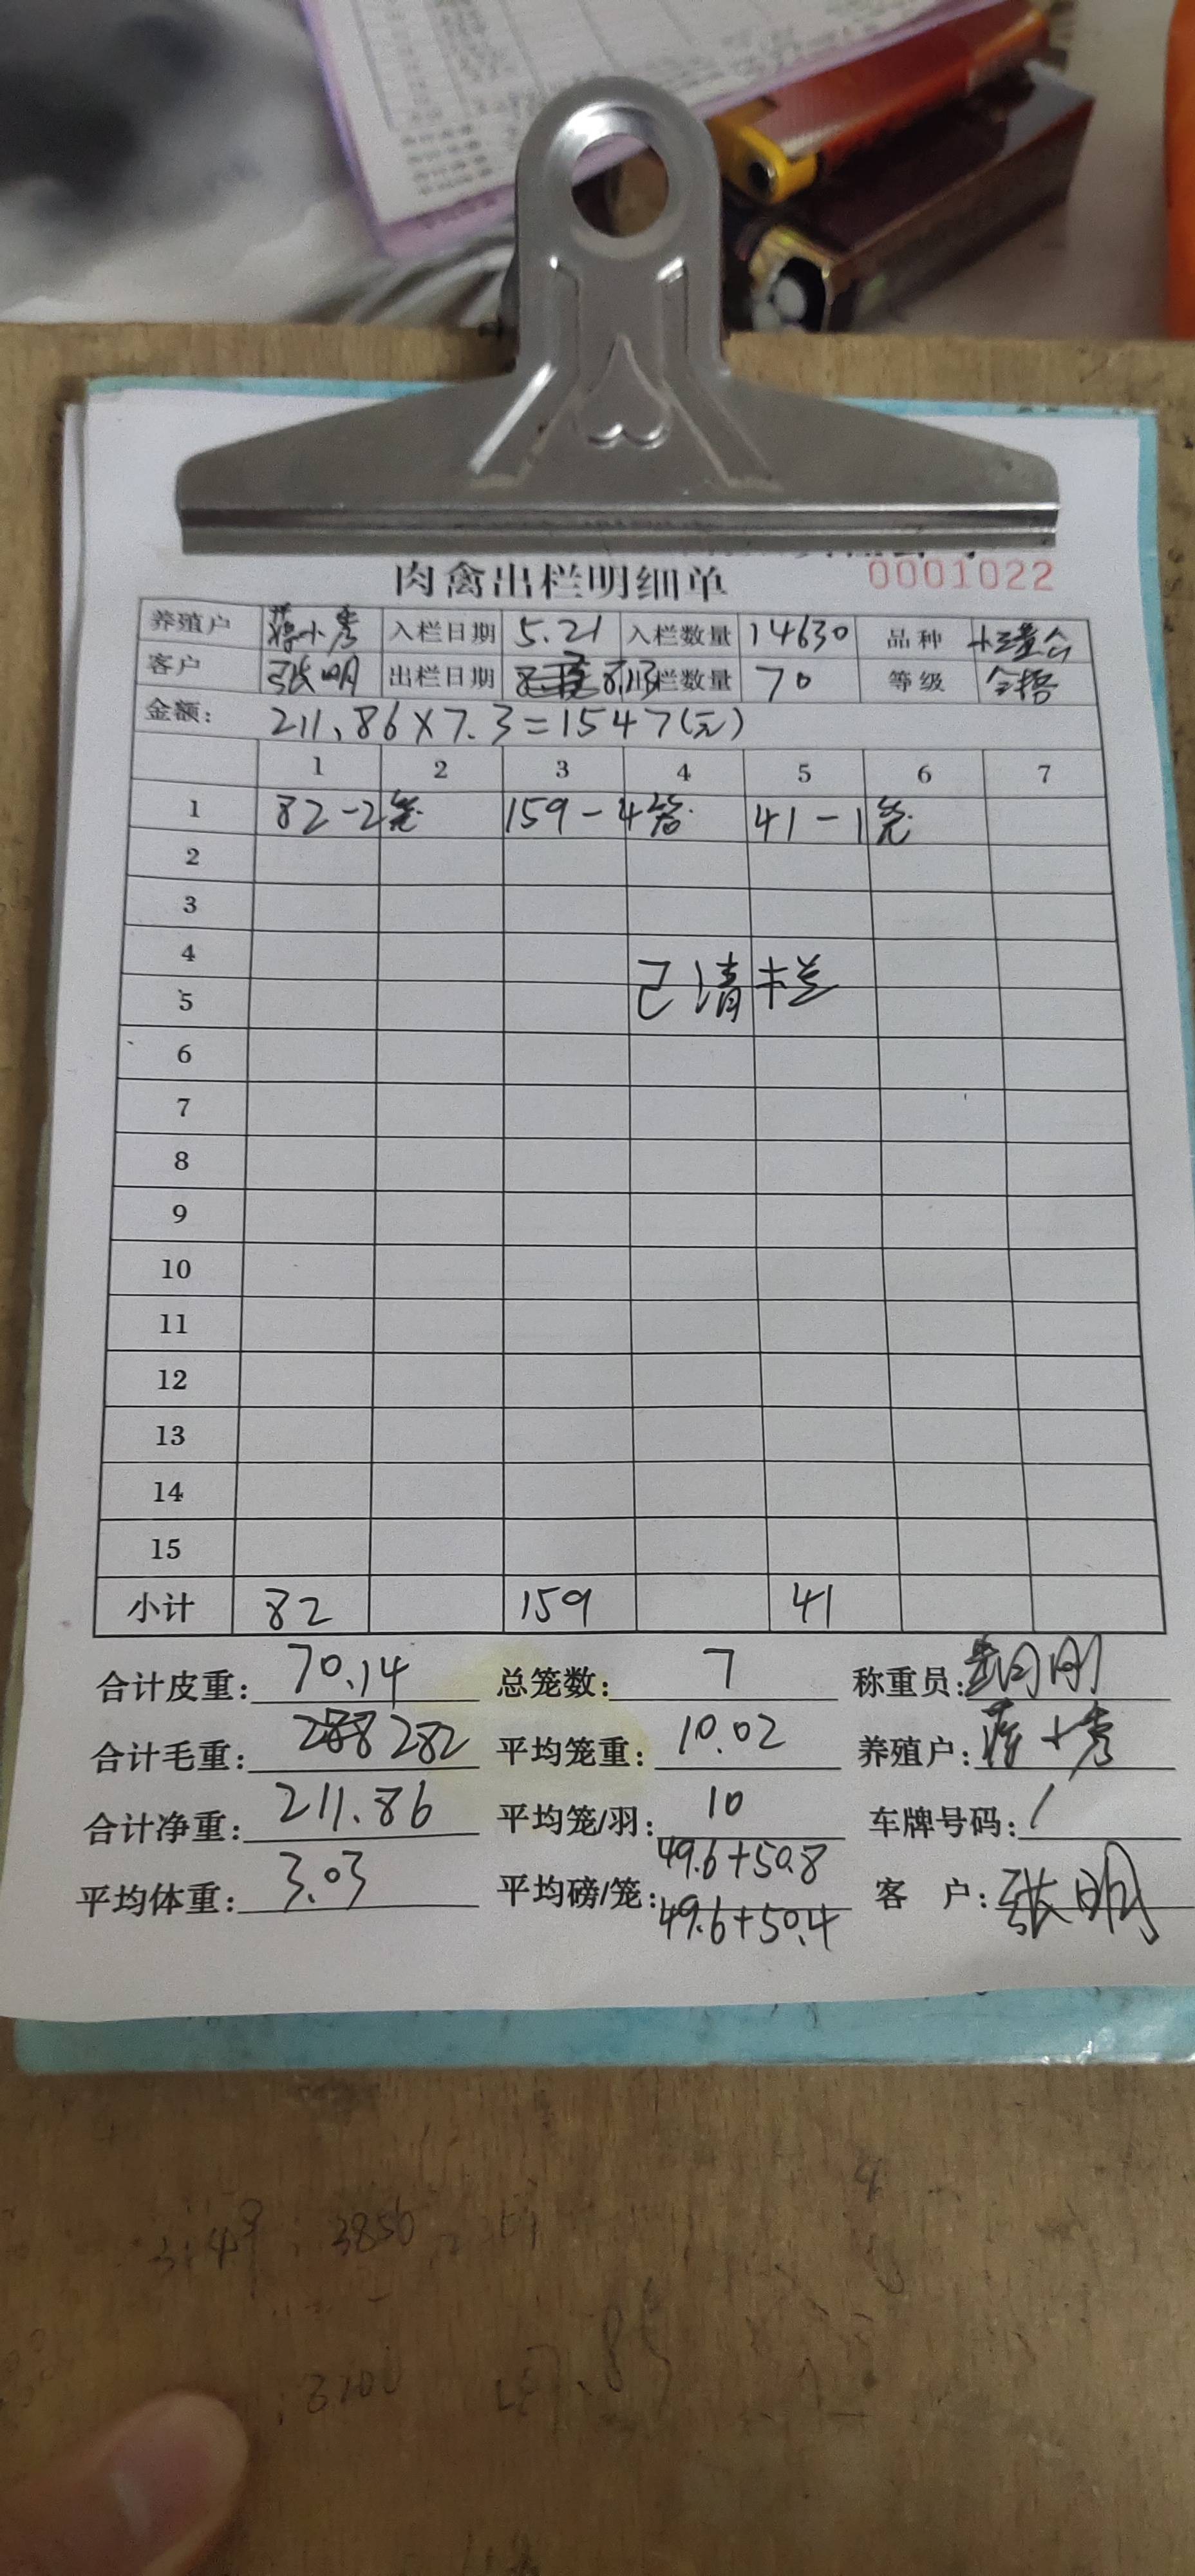 肉禽出栏明细单 0001022
养殖户 蒋小秀 入栏日期 5.21 入栏数量 14630 品种
客户 张明 出栏日期 8.13 出栏数量 70 等级 合格
金额: 211.86×7.3=1547(元)
1 2 3 4 5 6 7
1 82-2笼 159-4笼 41-1笼
2
3
4
已清栏
5
6
7
8
9
10
11
12
13
14
15
小计 82 159 41
合计皮重: 70.14 总笼数: 7 称重员:
合计毛重: 282 平均笼重: 10.02 养殖户: 蒋小秀
合计净重: 211.86 平均笼/羽: 10 车牌号码: /
49.6+50.8
平均体重: 3.03 平均磅/笼: 客 户: 张明
49.6+50.4